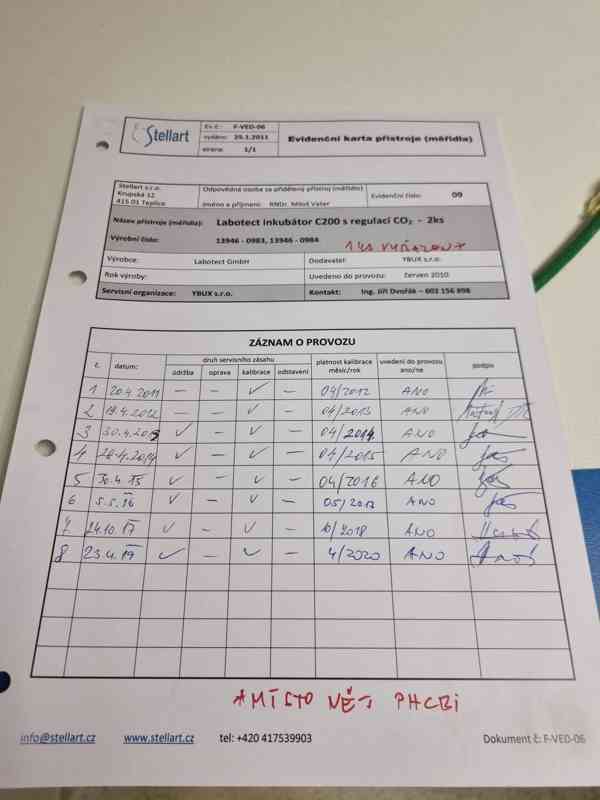 Stellart
Ev.č.: F-VED-06
vydáno: 25.1.2011
strana: 1/1
Evidenční karta přístroje (měřidla)
Stellart s.r.o.
Krupská 12
415 01 Teplice
Odpovědná osoba za přidělený přístroj (měřidlo)
jméno a příjmení: RNDr. Miloš Vater
Evidenční číslo: 09
Název přístroje (měřidla): Labotect inkubátor C200 s regulací CO₂ - 2ks
Výrobní číslo: 13946 - 0983, 13946 - 0984
Výrobce: Labotect GmbH Dodavatel: YBUX s.r.o.
Rok výroby: Uvedeno do provozu: červen 2010
Servisní organizace: YBUX s.r.o. Kontakt: Ing. Jiří Dvořák – 602 156 898
ZÁZNAM O PROVOZU
č. datum: druh servisního zásahu platnost kalibrace měsíc/rok uvedení do provozu ano/ne podpis
údržba oprava kalibrace odstavení
1 20.4.2011 — — ✓ — 04/2012 ANO
2 19.4.2012 — — ✓ — 04/2013 ANO
3 30.4.2013 ✓ — ✓ — 04/2014 ANO
4 28.4.2014 ✓ — ✓ — 04/2015 ANO
5 30.4.15 ✓ — ✓ — 04/2016 ANO
6 5.5.16 ✓ — ✓ — 05/2017 ANO
7 24.10.17 ✓ — ✓ — 10/2018 ANO
8 23.4.19 ✓ — ✓ — 4/2020 ANO
MÍSTO
info@stellart.cz www.stellart.cz tel: +420 417539903 Dokument č: F-VED-06